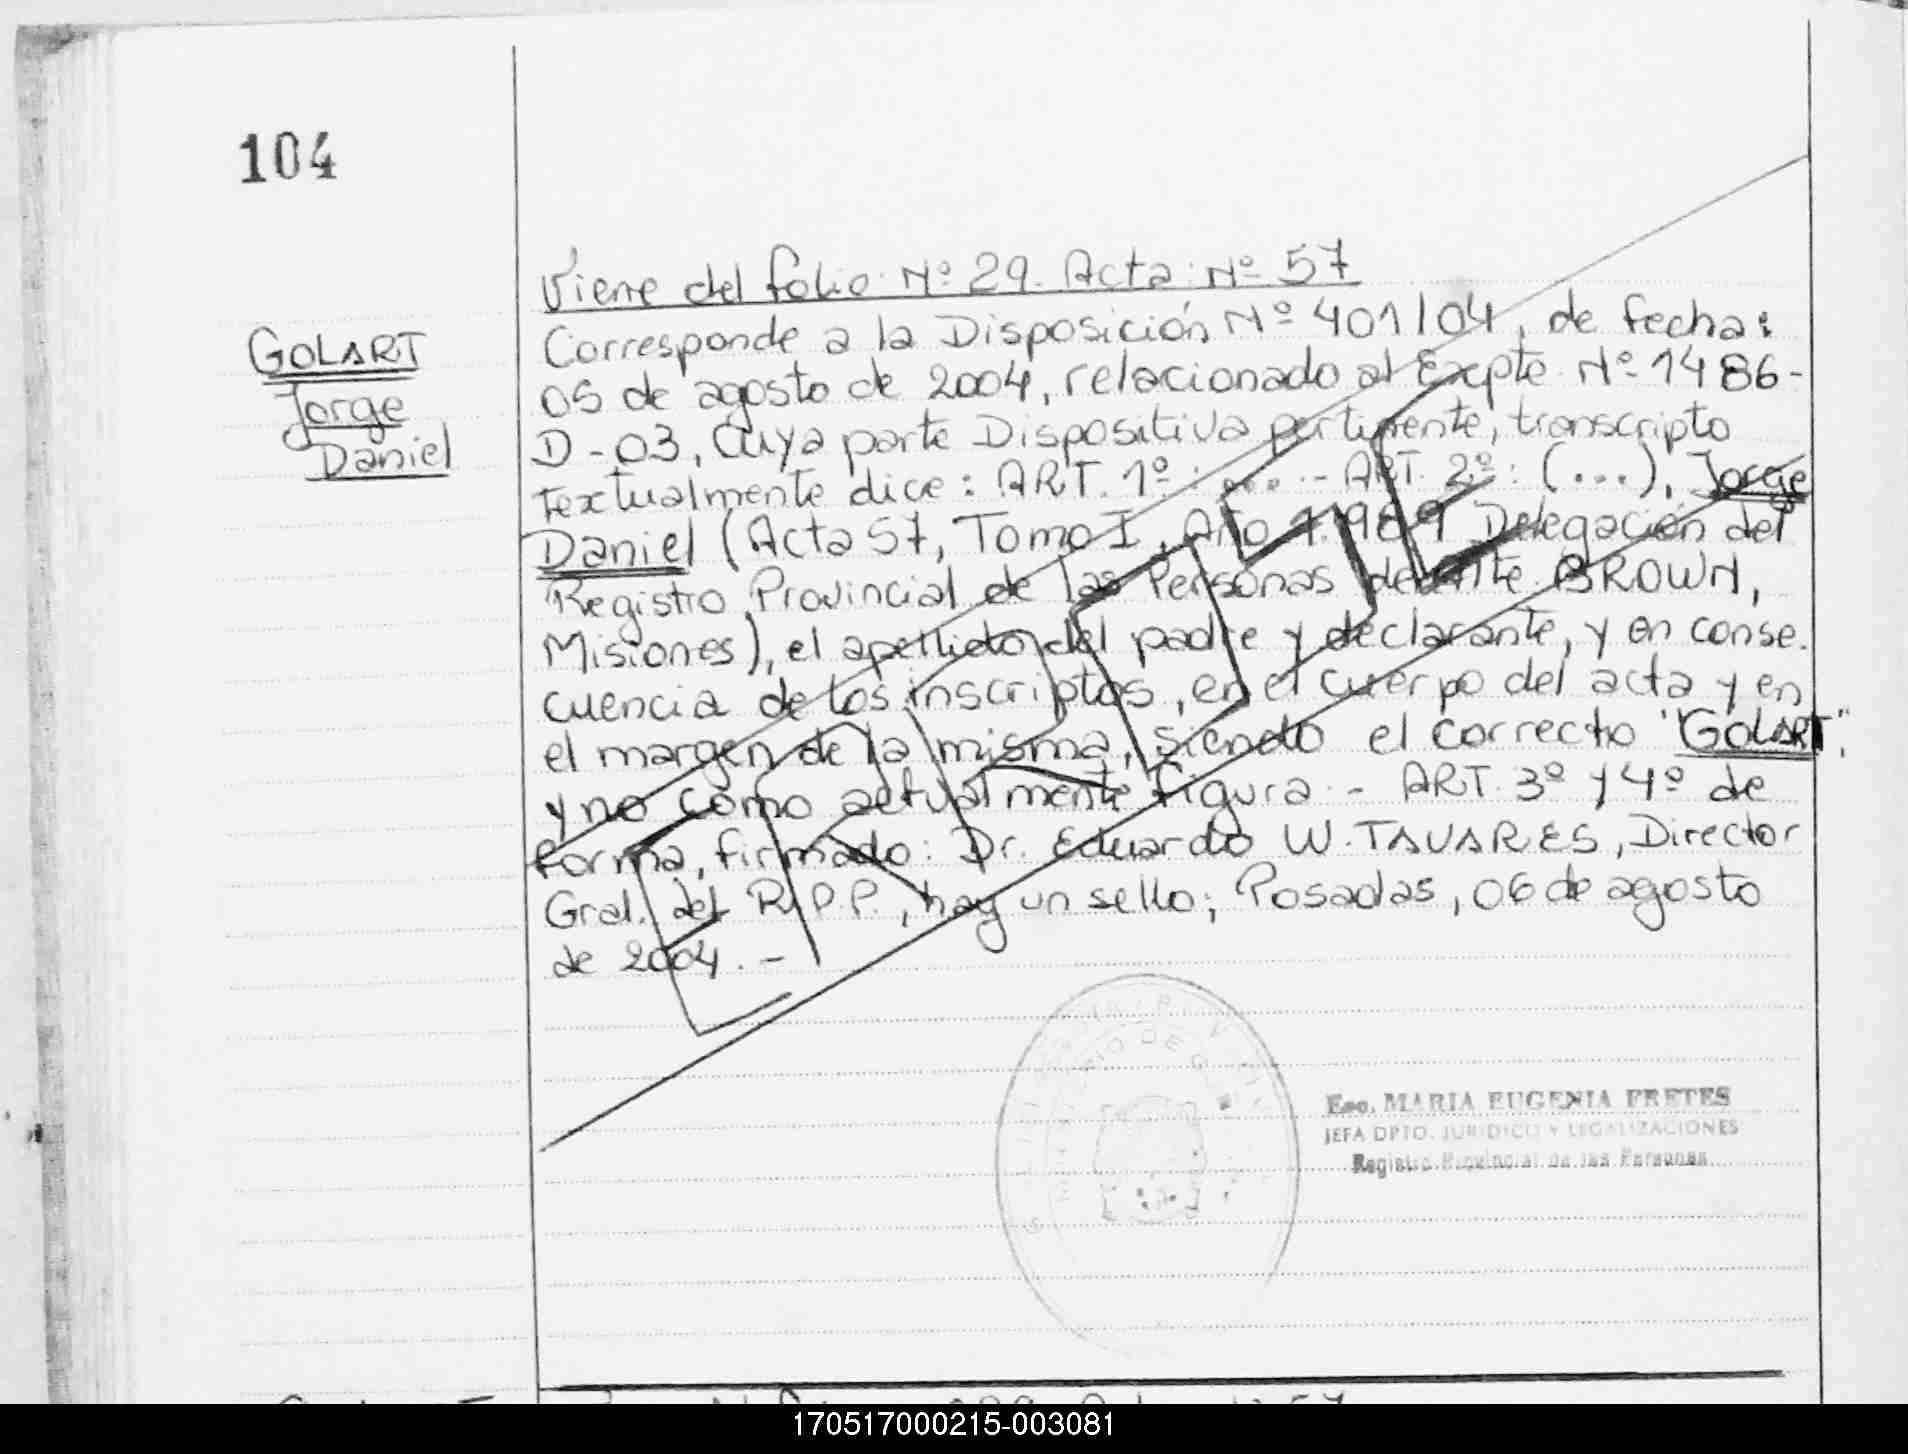 104
Viene del folio Nº 29. Acta: Nº 57
GOLART
Jorge
Daniel
Corresponde a la Disposición Nº 401/04, de fecha:
05 de agosto de 2004, relacionado al Expte. Nº 1486-
D-03, Cuya parte Dispositiva pertinente, transcripto
textualmente dice: ART. 1º: ... .- ART. 2º: (...), Jorge
Daniel (Acta 57, Tomo I, Año 1.989 Delegación del
Registro Provincial de las Personas de Alte. BROWN,
Misiones), el apellido del padre y declarante, y en conse.
cuencia de los inscriptos, en el cuerpo del acta y en
el margen de la misma, siendo el correcto "GOLART",
y no como actualmente figura.- ART. 3º y 4º de
forma, firmado: Dr. Eduardo W. TAVARES, Director
Gral. del R.P.P., hay un sello; Posadas, 06 de agosto
de 2004.-
ERROSE
Esc. MARIA EUGENIA FRETES
JEFA DPTO. JURIDICO Y LEGALIZACIONES
Registro Provincial de las Personas
170517000215-003081